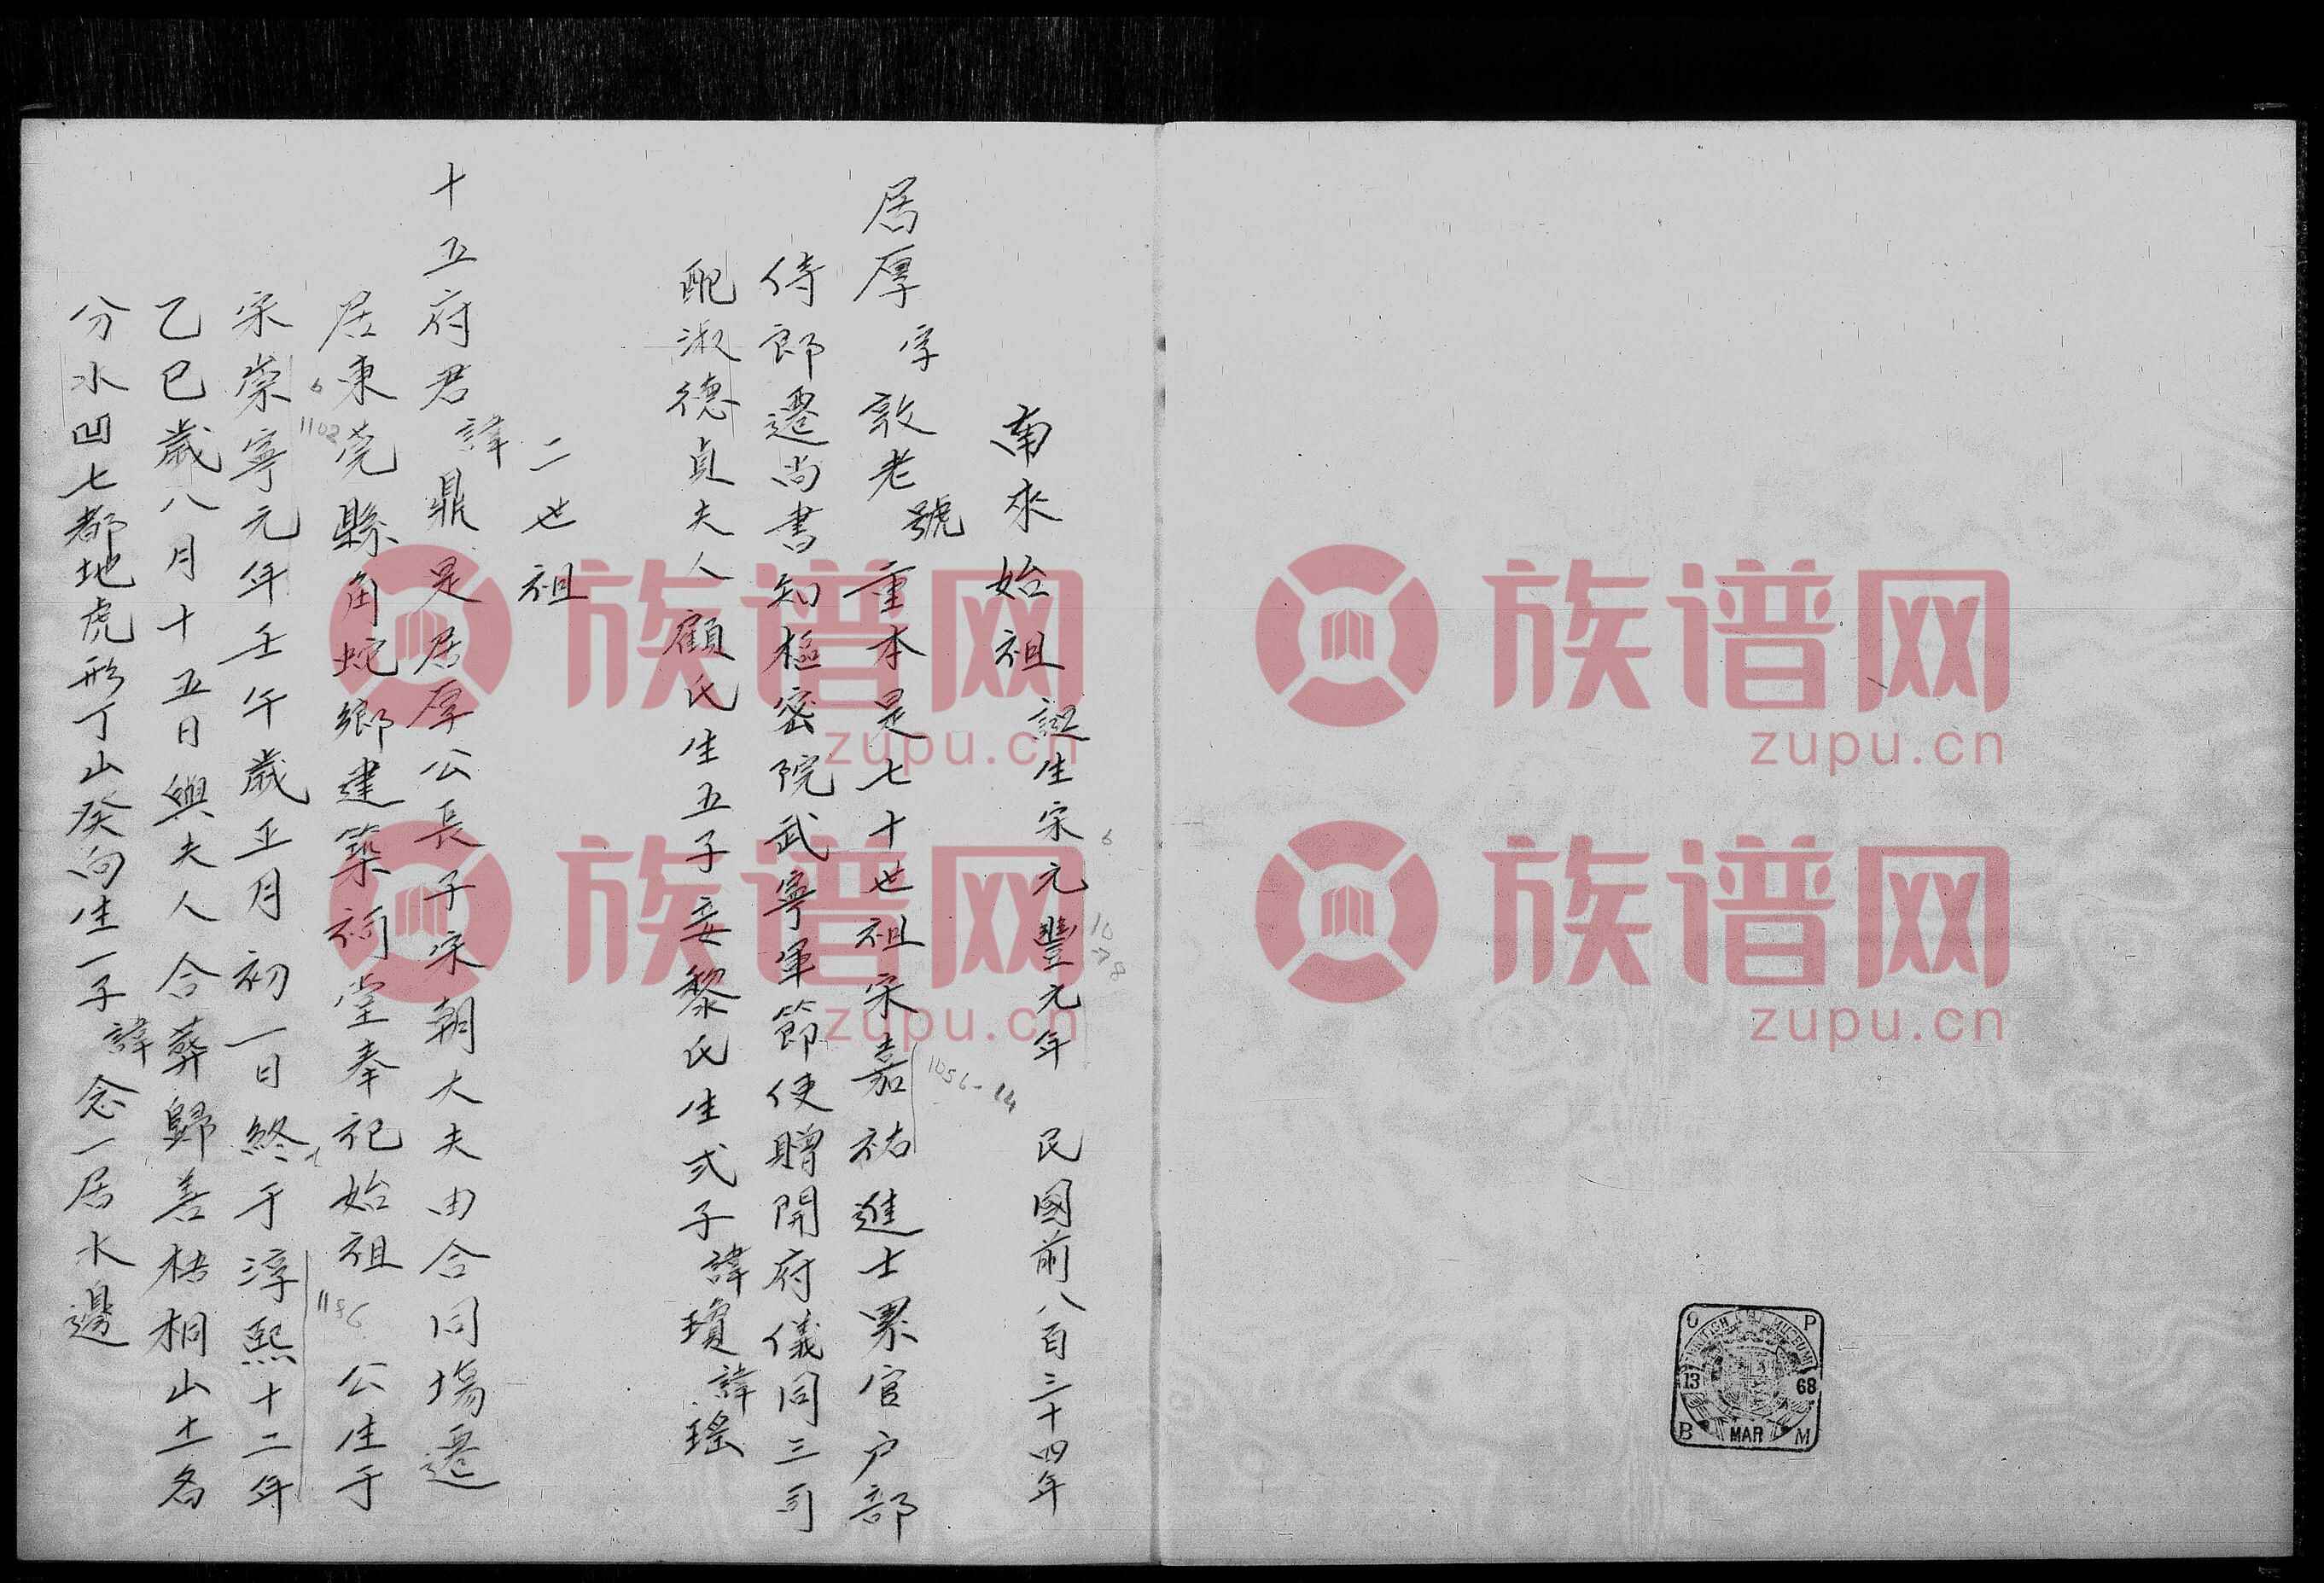 南來始祖 誕生宋元豐元年 民國前八百三十四年
6
1078
居厚 字 敦老 號 重本是七十世祖宋嘉祐進士累官户部
1056-14
侍郎遷尚書知樞密院武寧軍節使贈開府儀同三司
配淑德貞夫人顧氏生五子妾黎氏生弍子 諱 瓊 諱 瑤
二世祖
十五府君 諱 鼎是居厚公長子宋朝大夫由合同塲遷
居東莞縣角蛇鄉建築祠堂奉祀始祖 公生于
6
1102
1186
宋崇寧元年壬午歲正月初一日終于淳熙十二年
乙巳歲八月十五日與夫人合葬歸善梧桐山土名
分水凹七都地虎形丁山癸向生一子 諱 念一居水邊
族谱网
zupu.cn
族谱网
zupu.cn
族谱网
zupu.cn
族谱网
zupu.cn
O P
BRITISH MUSEUM
13 68
B MAR M